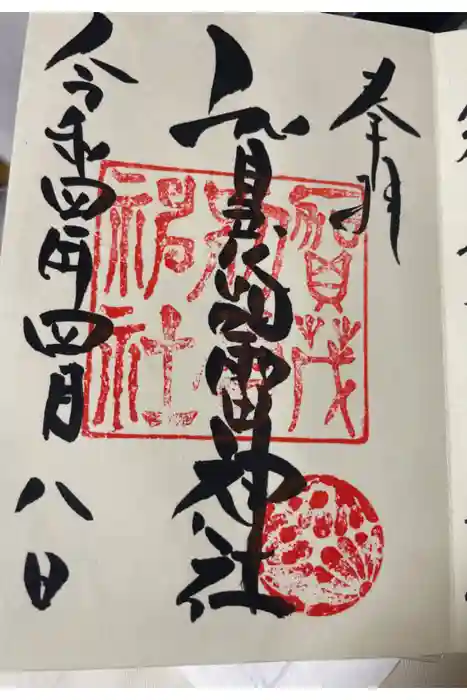 奉拝
賀茂別雷神社
令和四年四月八日
賀茂
神社